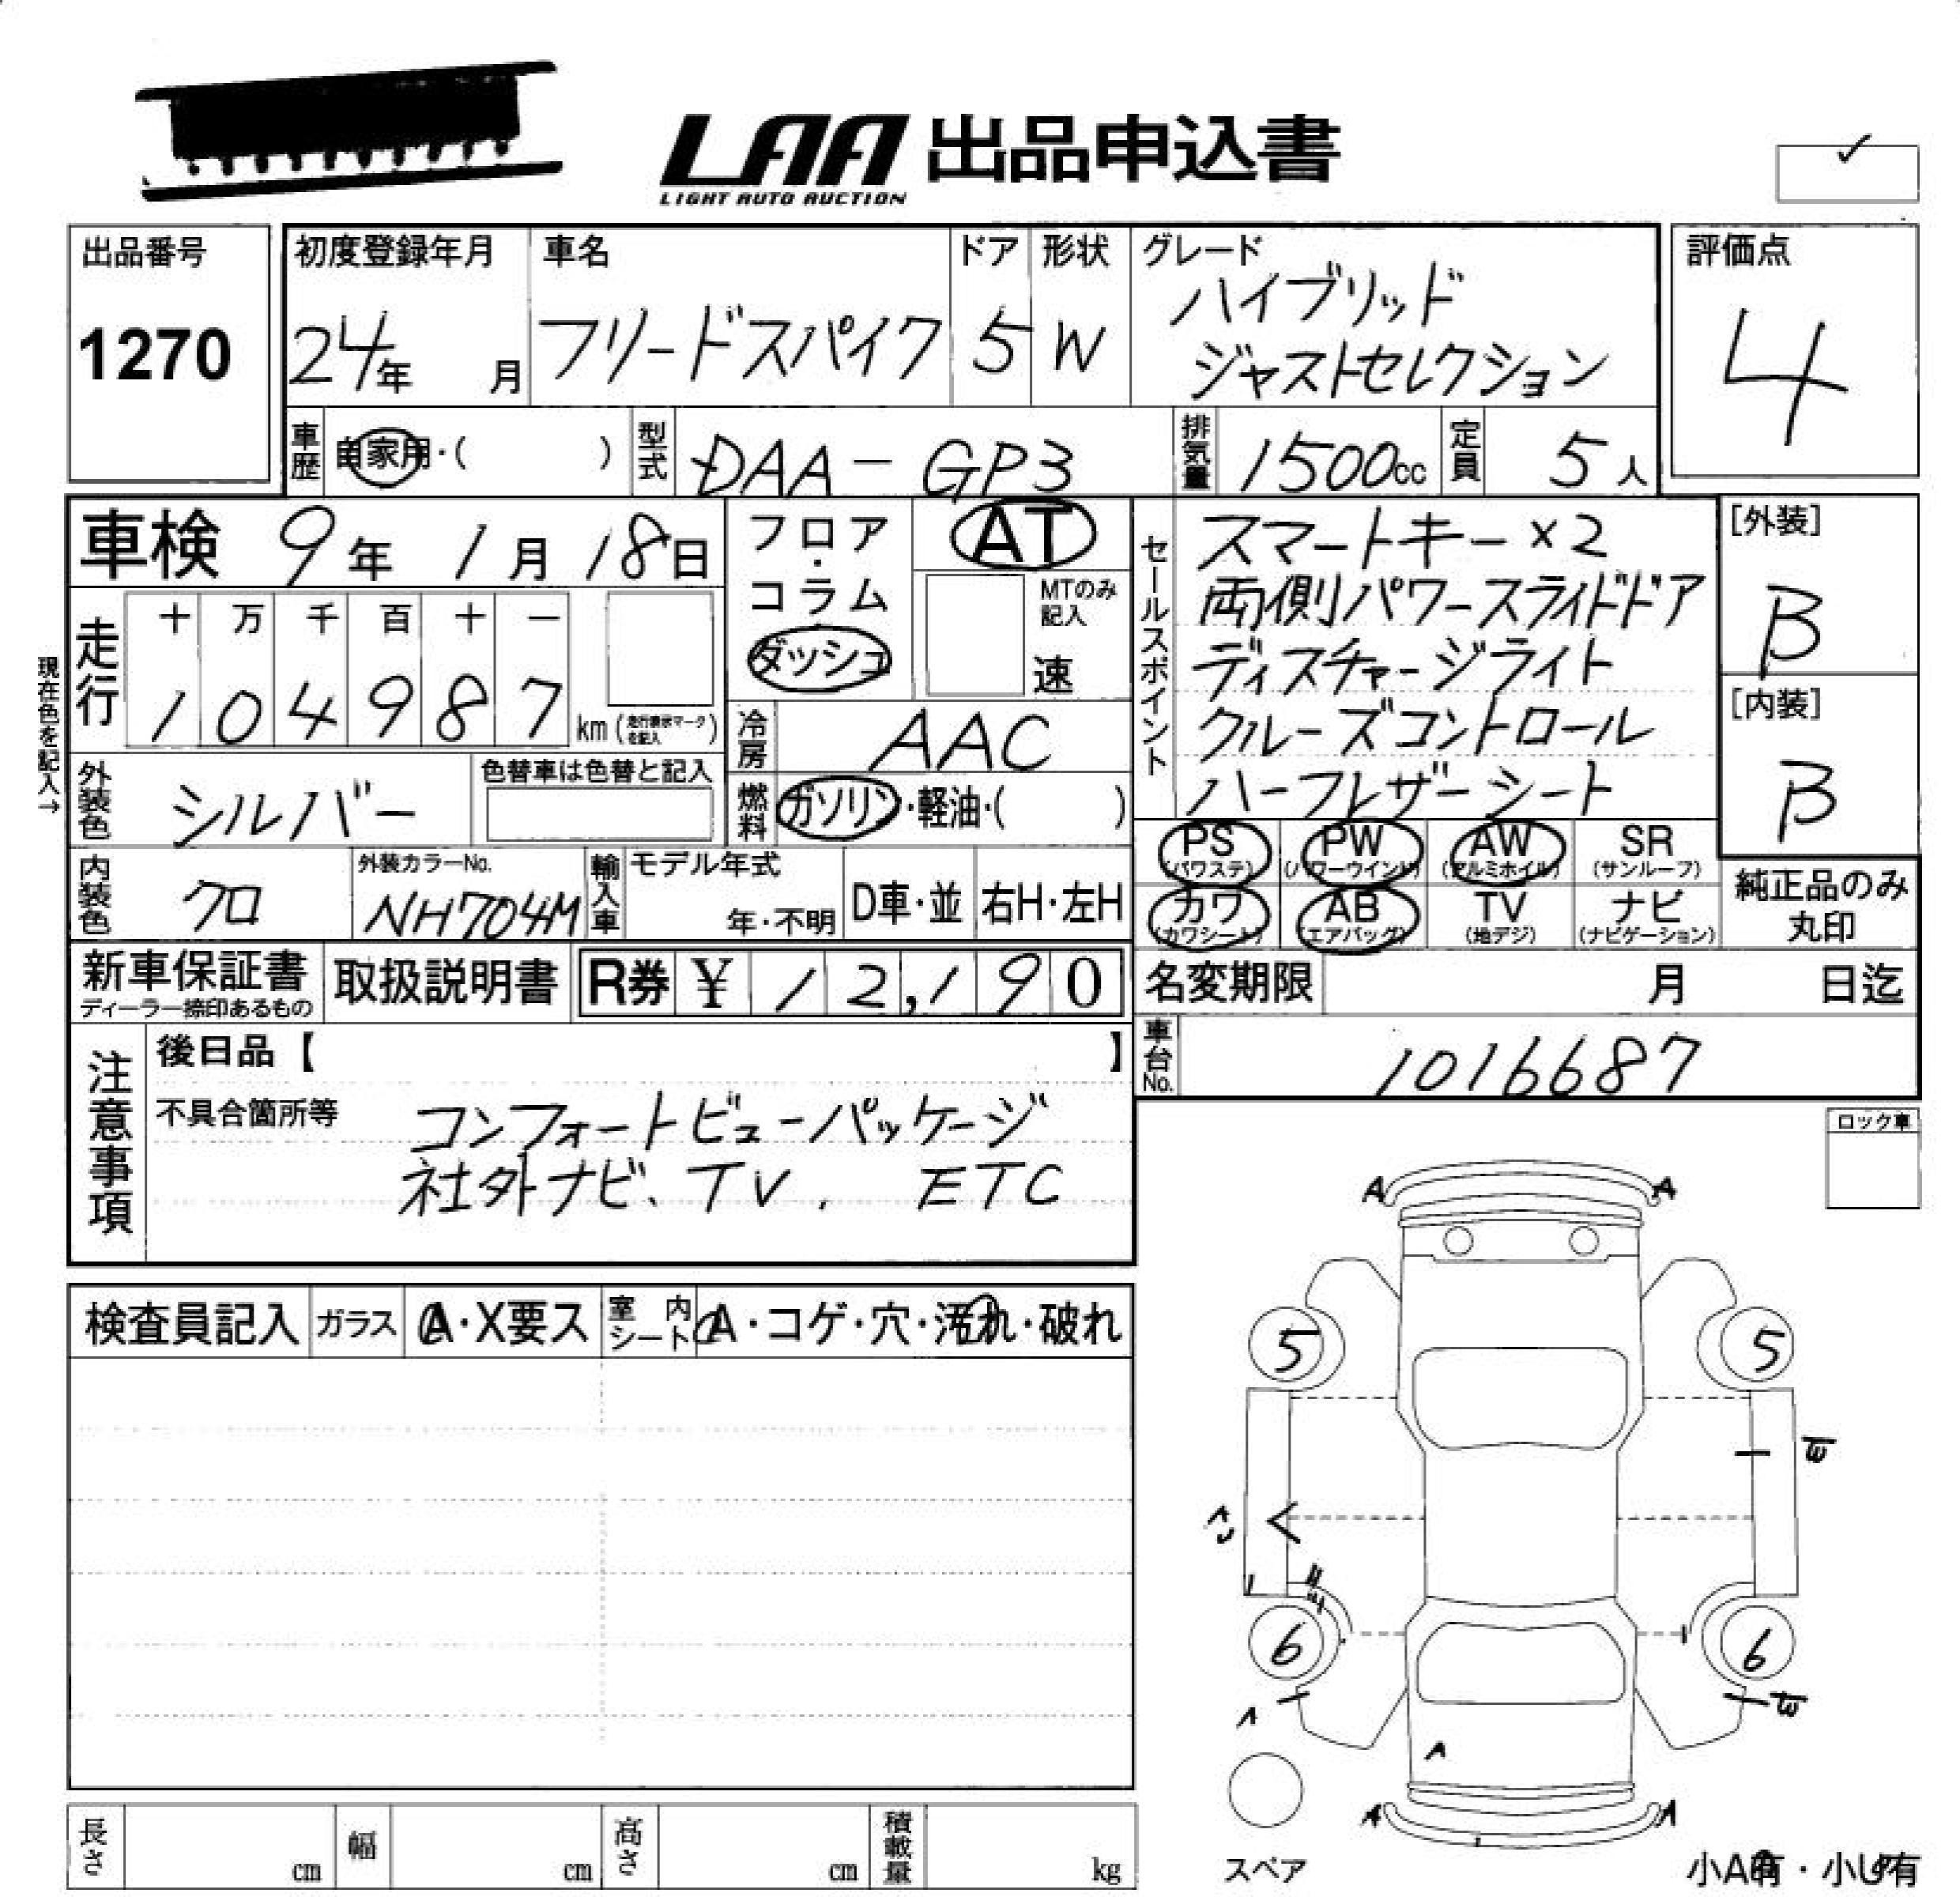 LAA 出品申込書
LIGHT AUTO AUCTION
出品番号
1270
初度登録年月
24年 月
車名
フリードスパイク
ドア
5
形状
W
グレード
ハイブリッド
ジャストセレクション
評価点
4
車歴 自家用・( )
型式 DAA-GP3
排気量 1500cc
定員 5人
車検 9年 1月 18日
現在色を記入→
走行
十 万 千 百 十 一
1 0 4 9 8 7 km (走行表示マークを記入)
フロア・コラム
ダッシュ
AT
MTのみ記入
速
冷房 AAC
燃料 ガソリン・軽油・( )
外装色 シルバー
色替車は色替と記入
内装色 クロ
外装カラーNo.
NH704M
輸入車
モデル年式
年・不明
D車・並
右H・左H
セールスポイント
スマートキー×2
両側パワースライドドア
ディスチャージライト
クルーズコントロール
ハーフレザーシート
[外装]
B
[内装]
B
PS (パワステ)
PW (パワーウインド)
AW (アルミホイル)
SR (サンルーフ)
カワ (カワシート)
AB (エアバッグ)
TV (地デジ)
ナビ (ナビゲーション)
純正品のみ丸印
新車保証書
ディーラー捺印あるもの
取扱説明書
R券 ¥ 12,190
名変期限 月 日迄
車台No. 1016687
注意事項
後日品【 】
不具合箇所等
コンフォートビューパッケージ
社外ナビ、TV、 ETC
ロック車
検査員記入
ガラス A・X要ス
室内シート A・コゲ・穴・汚れ・破れ
A A
5 5
6 6
A
A A
スペア
小A有・小U有
長さ cm
幅 cm
高さ cm
積載量 kg